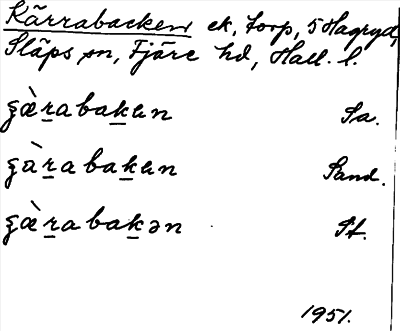 Kärrabacken ek, torp, 5 Hagryd,
Släps sn, Fjäre hd, Hall. l.
ȿæ̀r̲abak̲en Sa.
ȿàr̲abak̲en Sand.
ȿæ̀r̲abak̲ən St.
1951.